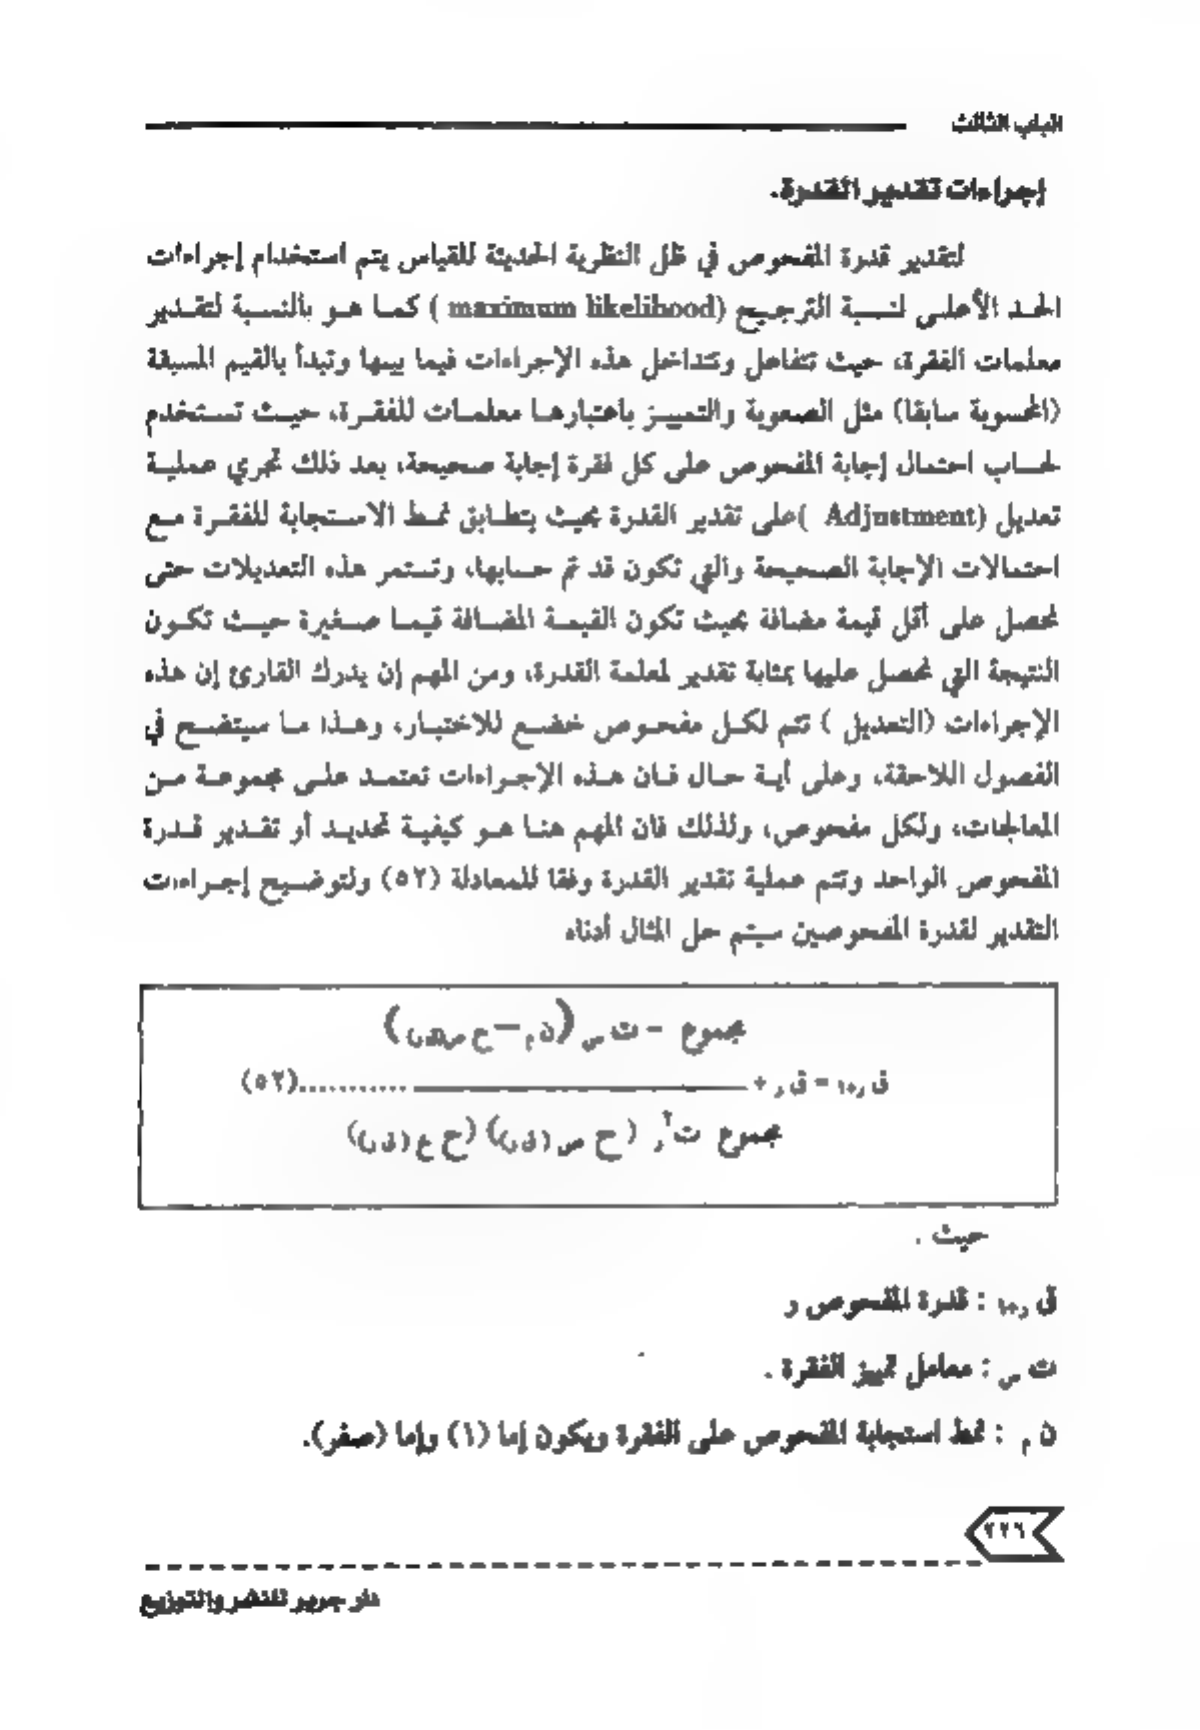 الباب الثالث
إجراءات تقدير القدرة.
لتقدير قدرة المفحوص في ظل النظرية الحديثة للقياس يتم استخدام إجراءات
الحد الأعلى لنسبة الترجيح (maximum likelihood ) كما هو بالنسبة لتقدير
معلمات الفقرة، حيث تتفاعل وتتداخل هذه الإجراءات فيما بينها وتبدأ بالقيم المسبقة
(المحسوبة سابقا) مثل الصعوبة والتمييز باعتبارها معلمات للفقرة، حيث تستخدم
لحساب احتمال إجابة المفحوص على كل فقرة إجابة صحيحة، بعد ذلك تجري عملية
تعديل (Adjustment )على تقدير القدرة بحيث يتطابق نمط الاستجابة للفقرة مع
احتمالات الإجابة الصحيحة والتي تكون قد تم حسابها، وتستمر هذه التعديلات حتى
نحصل على أقل قيمة مضافة بحيث تكون القيمة المضافة قيما صغيرة حيث تكون
النتيجة التي نحصل عليها بمثابة تقدير لمعلمة القدرة، ومن المهم إن يدرك القارئ إن هذه
الإجراءات (التعديل ) تتم لكل مفحوص خضع للاختبار، وهذا ما سيتضح في
الفصول اللاحقة، وعلى أية حال فان هذه الإجراءات تعتمد على مجموعة من
المعالجات، ولكل مفحوص، ولذلك فان المهم هنا هو كيفية تحديد أو تقدير قدرة
المفحوص الواحد وتتم عملية تقدير القدرة وفقا للمعادلة (٥٢) ولتوضيح إجراءات
التقدير لقدرة المفحوصين سيتم حل المثال أدناه
مجموع - ت س (ن م – ح س(ق ر))
ق ر+١ = ق ر + ـــــــــــــــ...........(٥٢)
مجموع ت٢ر (ح س (ق ر)) (ح ع (ق ر))
حيث .
ق ر+١ : قدرة المفحوص ر
ت س : معامل تمييز الفقرة .
ن م : نمط استجابة المفحوص على الفقرة ويكون إما (١) وإما (صفر).
٢٢٦
دار جرير للنشر والتوزيع